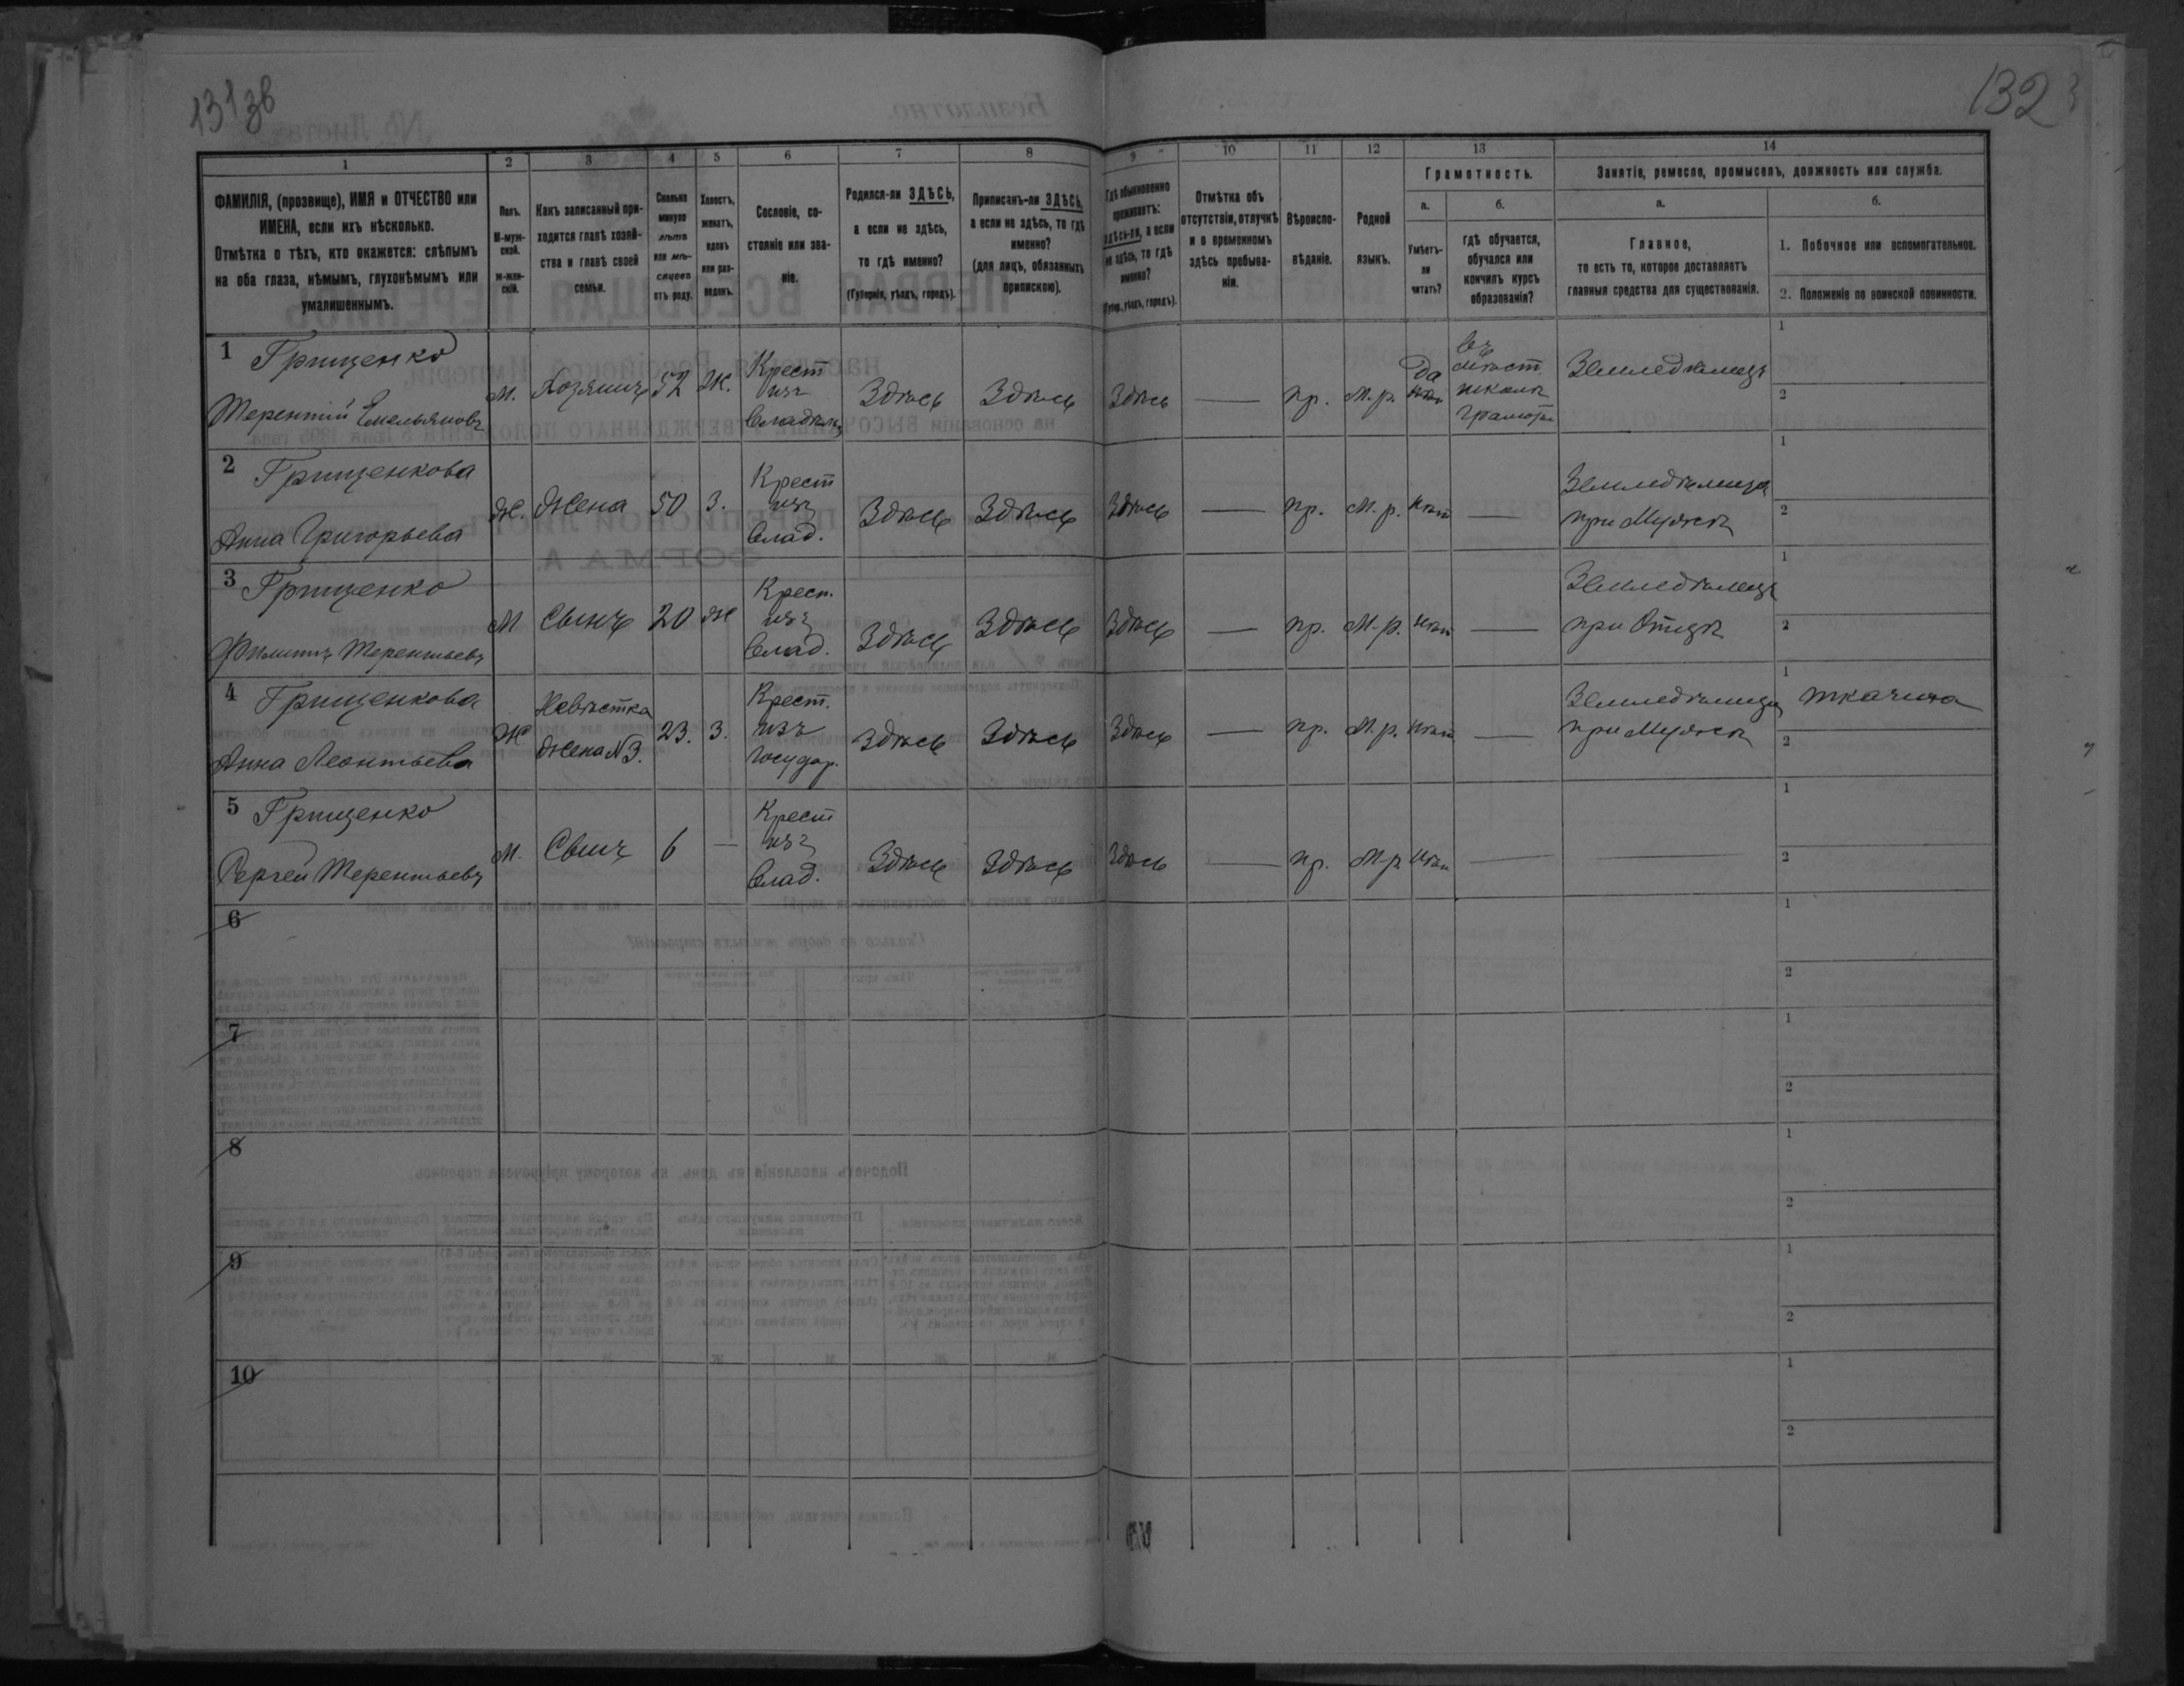 131зв
132
1
2
3
4
5
6
7
8
9
10
11
12
13
14
ФАМИЛІЯ, (прозвище), ИМЯ и ОТЧЕСТВО или
ИМЕНА, если ихъ нѣсколько.
Отмѣтка о тѣхъ, кто окажется: слѣпымъ
на оба глаза, нѣмымъ, глухонѣмымъ или
умалишеннымъ.
Полъ.
М-муж-
ской.
ж-жен-
скій.
Какъ записанный при-
ходится главѣ хозяй-
ства и главѣ своей
семьи.
Сколько
минуло
лѣтъ
или мѣ-
сяцевъ
отъ роду.
Холостъ,
женатъ,
вдовъ
или раз-
веденъ.
Сословіе, со-
стояніе или зва-
ніе.
Родился-ли ЗДѢСЬ,
а если не здѣсь,
то гдѣ именно?
(Губернія, уѣздъ, городъ).
Приписанъ-ли ЗДѢСЬ,
а если не здѣсь, то гдѣ
именно?
(для лицъ, обязанныхъ
припискою).
Гдѣ обыкновенно
проживаетъ:
здѣсь-ли, а если
не здѣсь, то гдѣ
именно?
(Губер., уѣздъ, городъ).
Отмѣтка объ
отсутствіи, отлучкѣ
и о временномъ
здѣсь пребыва-
ніи.
Вѣроиспо-
вѣданіе.
Родной
языкъ.
Грамотность.
а.
Умѣетъ-
ли
читать?
б.
гдѣ обучается,
обучался или
кончилъ курсъ
образованія?
Занятіе, ремесло, промыселъ, должность или служба.
а.
Главное,
то есть то, которое доставляетъ
главныя средства для существованія.
б.
1. Побочное или вспомогательное.
2. Положеніе по воинской повинности.
1 Грищенко
Терентій Емельяновъ
М. Хозяинъ 52 Ж.
Крест
изъ
Владѣльч
Здѣсь Здѣсь Здѣсь — пр. М.р.
Да
нѣт
въ
школѣ
грамоты
Земледѣлецъ
1
2
2 Грищенкова
Анна Григорьева
Ж. Жена 50 З.
Крест
изъ
Влад.
Здѣсь Здѣсь Здѣсь — пр. М.р. нѣт —
Земледѣлица
при Мужѣ
1
2
3 Грищенко
Филиппъ Терентьевъ
М Сынъ 20 Ж
Крест.
изъ
Влад.
Здѣсь Здѣсь Здѣсь — пр. М.р. нѣт —
Земледѣлецъ
при Отцѣ
1
2
4 Грищенкова
Анна Леонтьева
Ж
Невѣстка
Жена №3.
23. З.
Крест.
изъ
Государ.
Здѣсь Здѣсь Здѣсь — пр. М.р. нѣт —
Земледѣлица
при Мужѣ
1 ткачиха
2
5 Грищенко
Сергей Терентьевъ
М. Сынъ 6 —
Крест
изъ
Влад.
Здѣсь Здѣсь Здѣсь — пр. М.р. нѣт — —
1
2
6
1
2
7
1
2
8
1
2
9
1
2
10
1
2